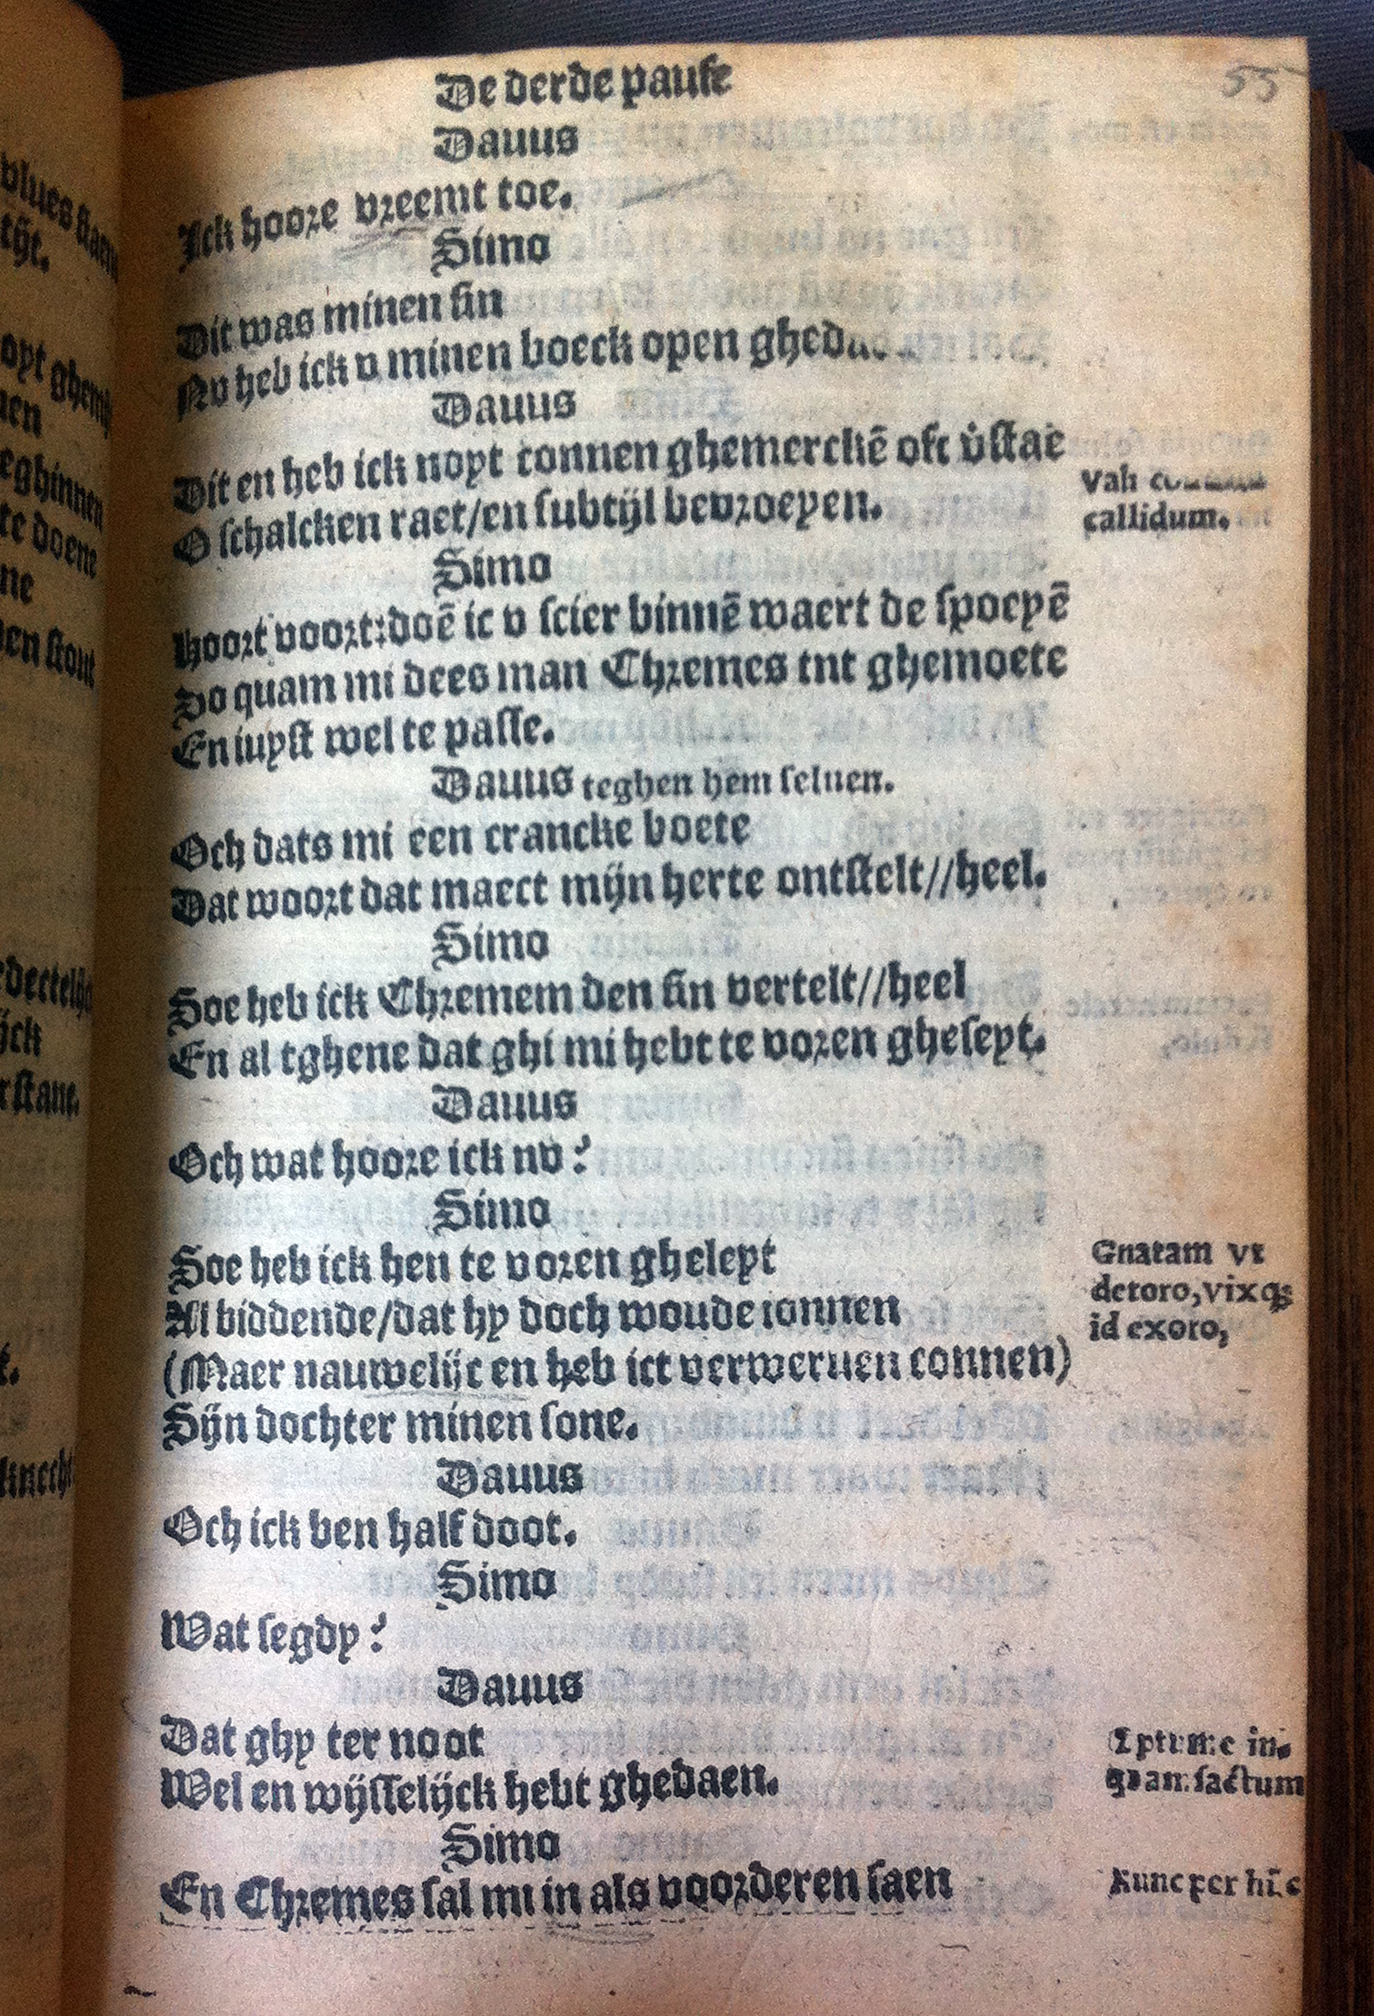 55
De derde pause
Dauus
Ick hoore vreemt toe.
Simo
Dit was minen sin
Nv heb ick v minen boeck open
Dauus
Dit en heb ick noyt connen ghemerckē oft v̊staē
O schalcken raet/en subtijl bevroeyen.
Vah
callidum.
Simo
Hoort voort:doē ic v scier binnē waert de spoeyē
So quam mi dees man Chremes int ghemoete
En iuyst wel te passe.
Dauus teghen hem seluen.
Och dats mi een crancke boete
Dat woort dat maect mijn herte ontstelt//heel.
Simo
Soe heb ick Chremem den sin vertelt//heel
En al tghene dat ghi mi hebt te voren gheseyt.
Dauus
Och wat hoore ick nv?
Simo
Soe heb ick hen te voren gheleyt
Al biddende/dat hy doch woude ionnen
(Maer nauwelijc en heb ict verweruen connen)
Sijn dochter minen sone.
Gnatam vt
detoro,vixq;
id exoro,
Dauus
Och ick ben half doot.
Simo
Wat segdy?
Dauus
Dat ghy ter noot
Wel en wijsselijck hebt ghedaen.
Optume in.
quam factum
Simo
En Chremes sal mi in als voorderen saen
Nunc per hūc